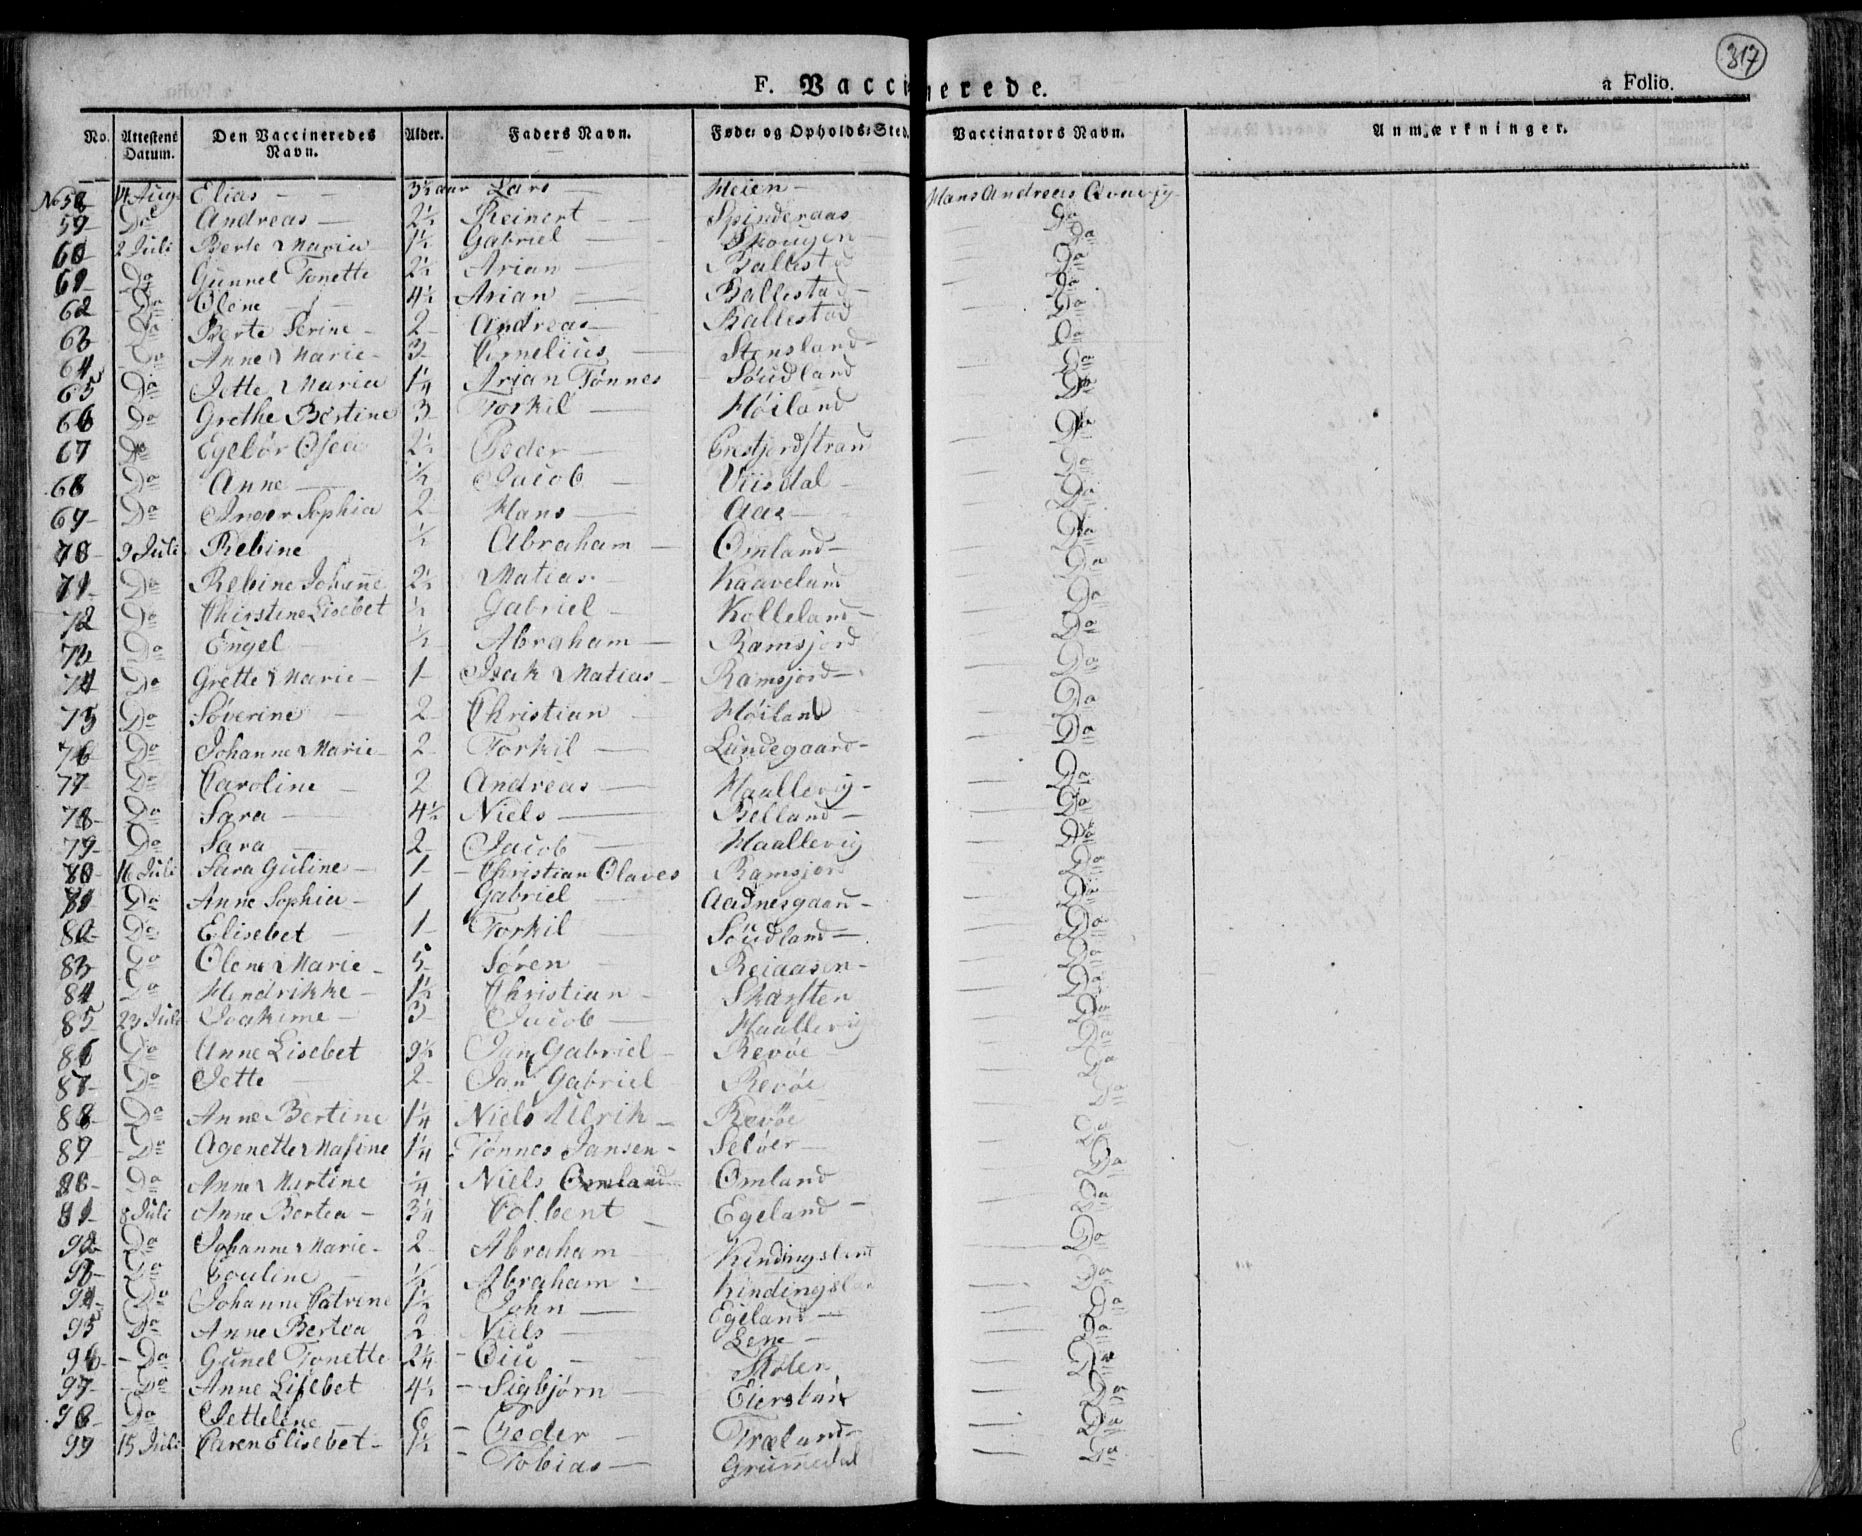 317
F. Vaccinerede. a Folio.
No. Attestens Datum. Den Vaccineredes Navn. Alder. Faders Navn. Føde- og Opholds-Sted. Vaccinators Navn. Anmærkninger.
No 58 14 Aug. Elias 3½ aar Lars Heien Hans Andreas
59 Do Andreas 2½ Reinert Spinderaas Do
60 2 Juli Berte Maria 1½ Gabriel Skougen Do
61 Do Gunnel Tonette 2½ Arian Ballestad Do
62 Do Olene 4½ Arian Ballestad Do
63 Do Berte Serine 2 Andreas Ballestad Do
64 Do Anne Marie 3 Cornelius Stensland Do
65 Do Jette Maria 1¼ Arian Tønnes Søudland Do
66 Do Grethe Bertine 3 Torkil Høiland Do
67 Do Egelør Osea 2½ Peder Do
68 Do Anne ½ Jacob Viisdal Do
69 Do Inger Sophia 2 Hans Aas Do
70 9 Juli Rebine ½ Abraham Omland Do
71 Do Rebine Johanne 2½ Matias Kaaveland Do
72 Do Chirstine Lisebet ½ Gabriel Kolleland Do
73 Do Engel ½ Abraham Ramsjord Do
74 Do Grette Marie 1 Isak Matias Ramsjord Do
75 Do Søverine 2 Christian Høiland Do
76 Do Johanne Marie 2 Torkil Lundegaard Do
77 Do Caroline 2 Andreas Haallevig Do
78 Do Sara 4½ Niels Belland Do
79 Do Sara 2 Jacob Haallevig Do
80 16 Juli Sara Guline 1 Christian Olaves Ramsjord Do
81 Do Anne Sophia 1 Gabriel Aadnesgaard Do
82 Do Elisebet 1 Torkil Søudland Do
83 Do Olene Marie 5 Søren Reiaasen Do
84 Do Hendrikke 1½ Christian Skarsten Do
85 23 Juli Joakime 3 Jacob Haallevig Do
86 Do Anne Lisebet 9½ Jan Gabriel Revøe Do
87 Do Jette 2 Jan Gabriel Revøe Do
88 Do Anne Bertine 1¼ Niels Ulrik Revøe Do
89 Do Agenette Masine 1¼ Tønnes Jansen Seløer Do
80 Do Anne Martine ¼ Niels Omland Omland Do
81 8 Juli Anne Bertea 3¼ Colbent Egeland Do
92 Do Johanne Marie 2 Abraham Kindingsland Do
93 Do Pouline ½ Abraham Kindingsland Do
94 Do Johanne Catrine 1½ John Egeland Do
95 Do Anne Bertea 2 Niels Lene Do
96 Do Gunel Tonette 2¼ Stølen Do
97 Do Anne Lisebet 4½ Sigbjørn Eiersland Do
98 Do Jettelene 6 Peder Træland Do
99 15 Juli Caren Elisebet 1½ Tobias Grummedal Do